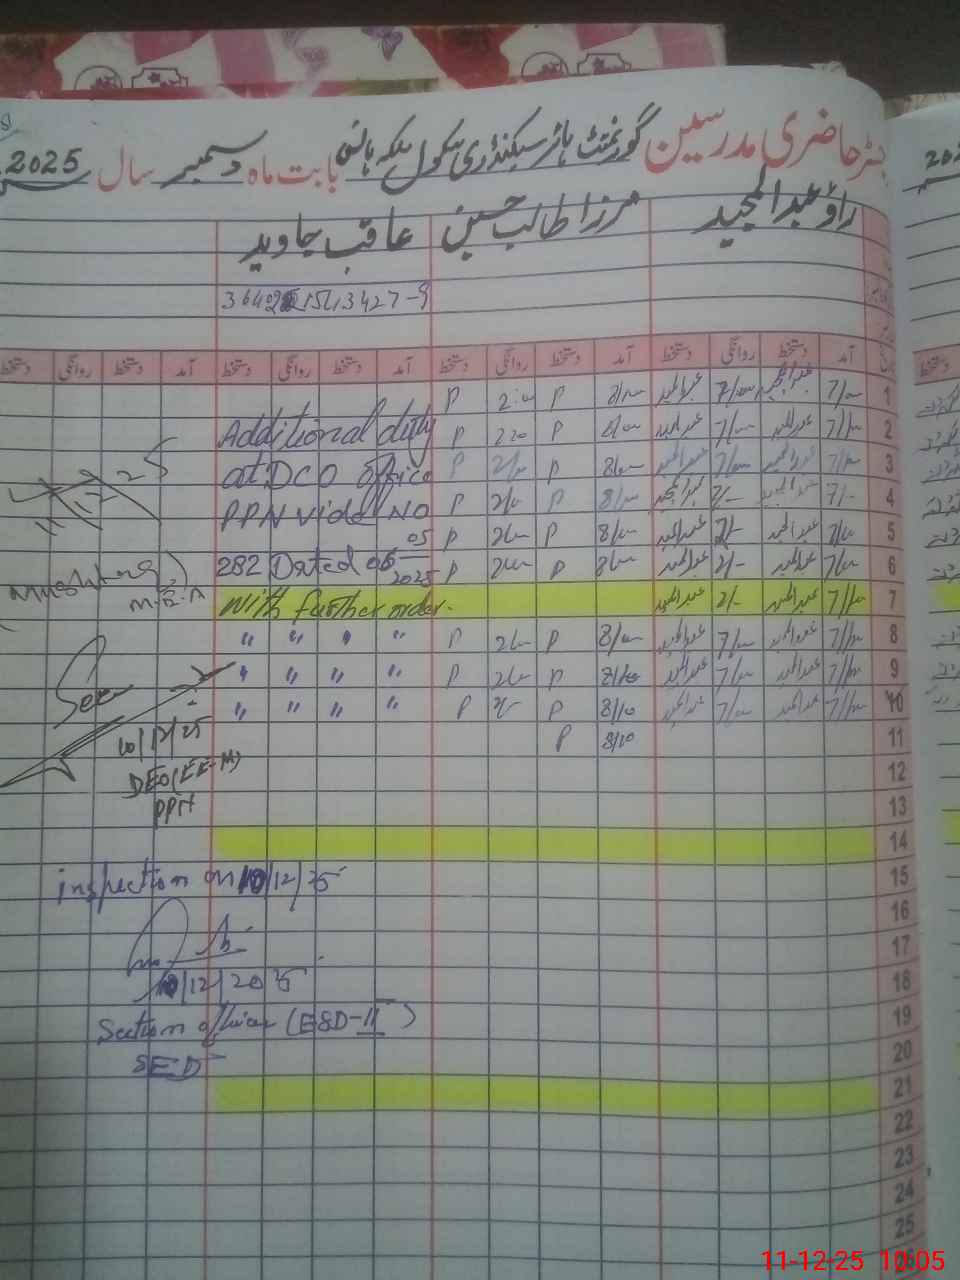 رجسٹر حاضری مدرسین گورنمنٹ ہائر سیکنڈری سکول ملکہ ہانس بابت ماہ دسمبر سال 2025
راؤ عبدالمجید
مرزا طالب حسین
عاقب جاوید
آمد دستخط روانگی دستخط آمد دستخط روانگی دستخط آمد دستخط روانگی دستخط آمد دستخط روانگی دستخط
1 7/00 عبدالمجید 7/00 عبدالمجید P P
2 7/00 عبدالمجید 7/00 عبدالمجید P P
3 7/00 عبدالمجید 7/00 عبدالمجید 8/00 P 2/00 P
4 7/- عبدالمجید 2/- عبدالمجید 8/00 P 2/00 P
5 7/00 عبدالمجید 2/- عبدالمجید 8/00 P 2/00 P
6 7/00 عبدالمجید 2/- عبدالمجید 8/00 P 2/00 P
7 7/00 عبدالمجید 2/- عبدالمجید
8 7/00 عبدالمجید 7/00 عبدالمجید 8/00 P 2/00 P
9 7/00 عبدالمجید 7/00 عبدالمجید P 2/00 P
10 7/00 عبدالمجید 7/00 عبدالمجید 8/10 P 2/- P
11 8/10 P
12
13
14
15
16
17
18
19
20
21
22
23
24
25
26
Additional duty
at DCO office
PPN vide NO
282 Dated 05
05
2025
With further order.
" " " "
" " " "
" " " "
11-12-25
M.E.A
Seen
10/12/25
DEO(EE-M)
PPN
inspection on 10/12/25
10/12/2025
Section officer (E&D-II)
SED
11-12-25 10:05